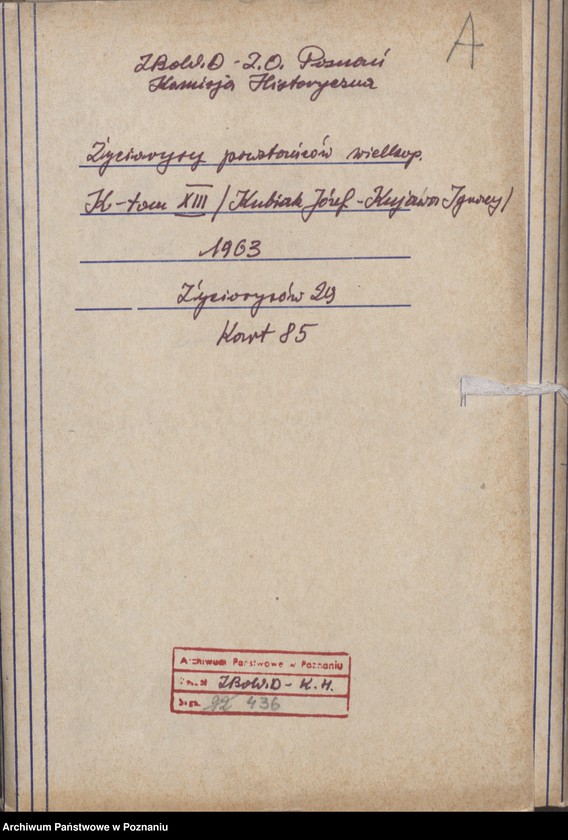 A
ZBoWiD - Z.O. Poznań
Komisja Historyczna
Życiorysy powstańców wielkop.
K-tom XIII / Kubiak Józef - Kujawa Ignacy /
1963
Życiorysów 29
Kart 85
Archiwum Państwowe w Poznaniu
ZBoWiD - K.H.
Sygn. 436
Archiwum Państwowe w Poznaniu